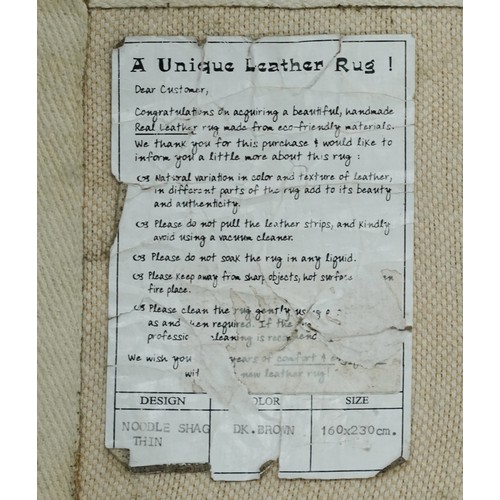 A Unique Leather Rug !
Dear Customer,
Congratulations on acquiring a beautiful, handmade
Real Leather rug made from eco-friendly materials.
We thank you for this purchase & would like to
inform you a little more about this rug :
Natural variation in color and texture of leather,
in different parts of the rug add to its beauty
and authenticity.
Please do not pull the leather strips, and kindly
avoid using a vacuum cleaner.
Please do not soak the rug in any liquid.
Please keep away from sharp objects, hot surface
fire place.
Please clean the rug gently using
as and when required. If the
cleaning is
We wish you years of comfort &
new leather rug!
DESIGN
SIZE
NOODLE SHAG
THIN
DK.BROWN
160x230cm.